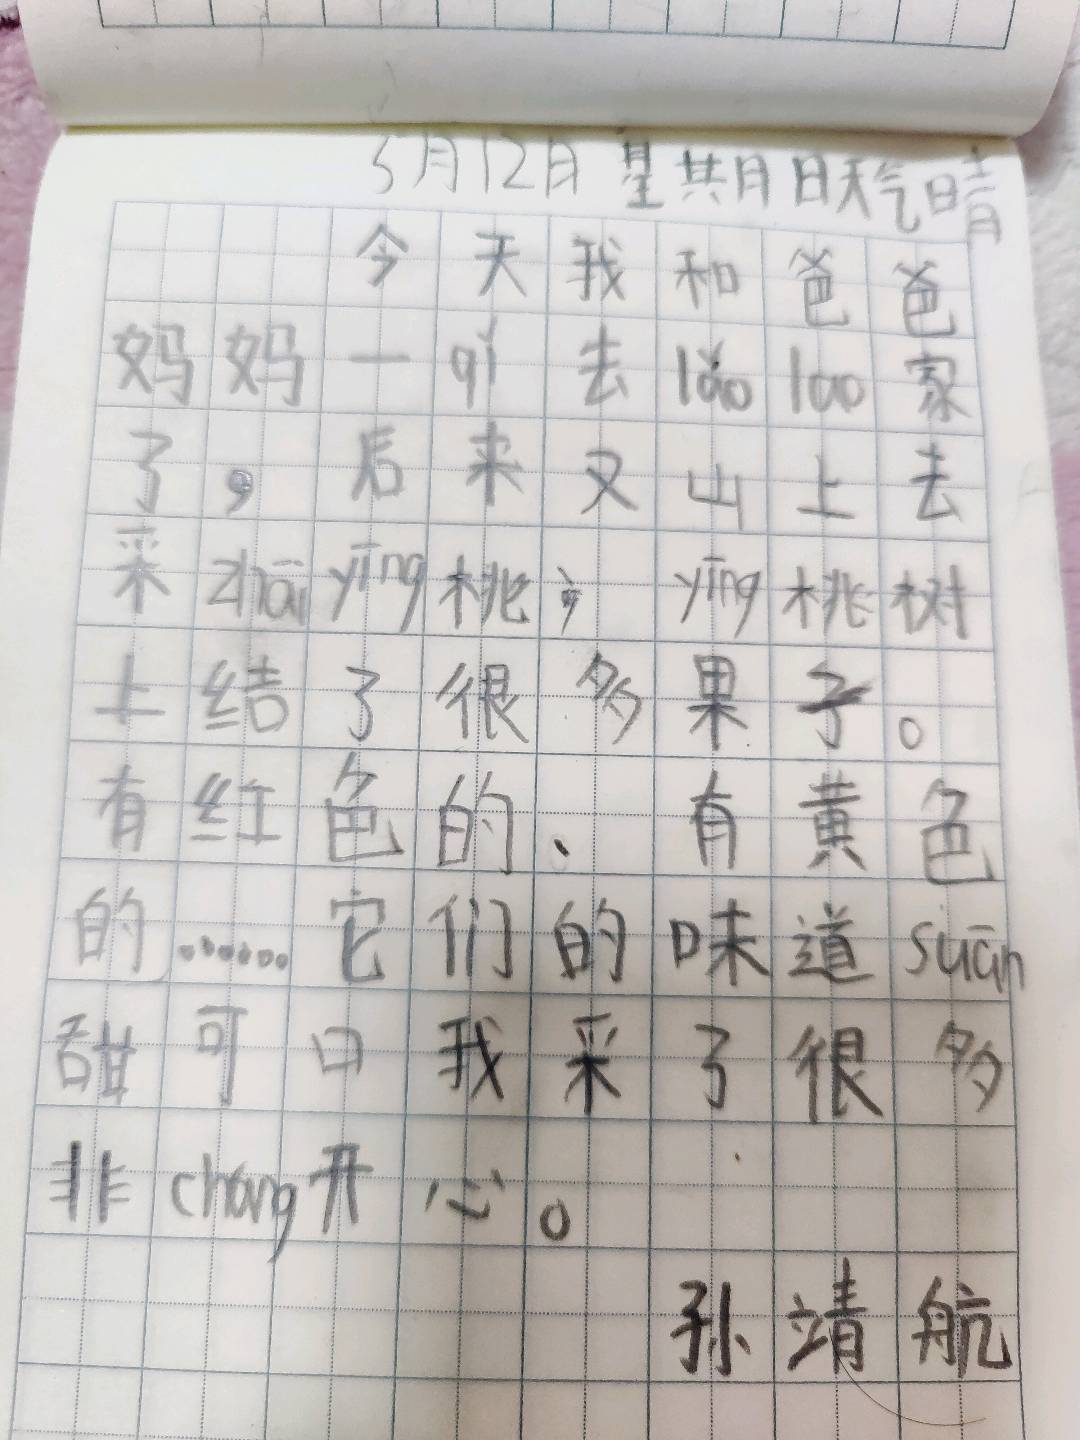 5月12日 星期日 天气晴
今天我和爸爸
妈妈一qǐ去lǎo lao家
了，后来又山上去
采zhāi yīng桃，yīng桃树
上结了很多果子。
有红色的、有黄色
的……它们的味道suān
甜可口我采了很多
非cháng开心。
孙靖航